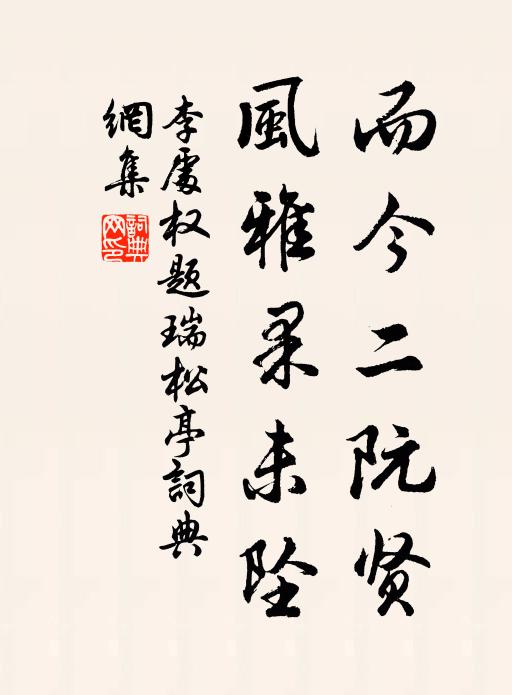 而今二阮贤
風雅果未坠
李處权题瑞松亭詞典
網集
詞典網印